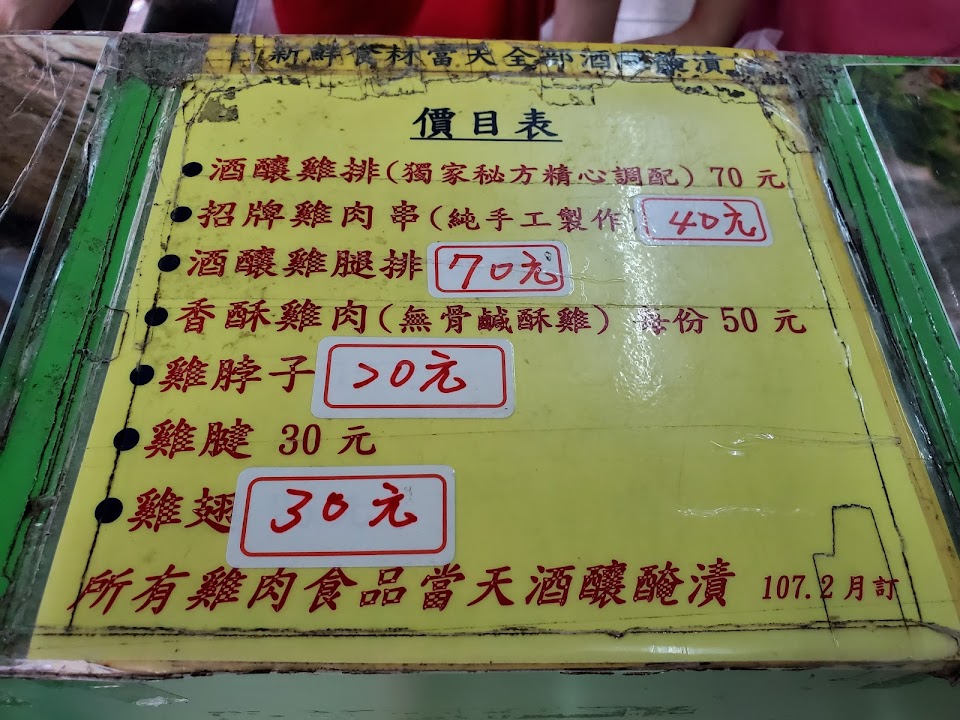 新鮮食材當天全部酒釀醃漬
價目表
●酒釀雞排(獨家秘方精心調配) 70 元
●招牌雞肉串(純手工製作) 40元
●酒釀雞腿排 70元
●香酥雞肉(無骨鹹酥雞) 每份 50 元
●雞脖子 20元
●雞腱 30 元
●雞翅 30元
所有雞肉食品當天酒釀醃漬 107.2月訂